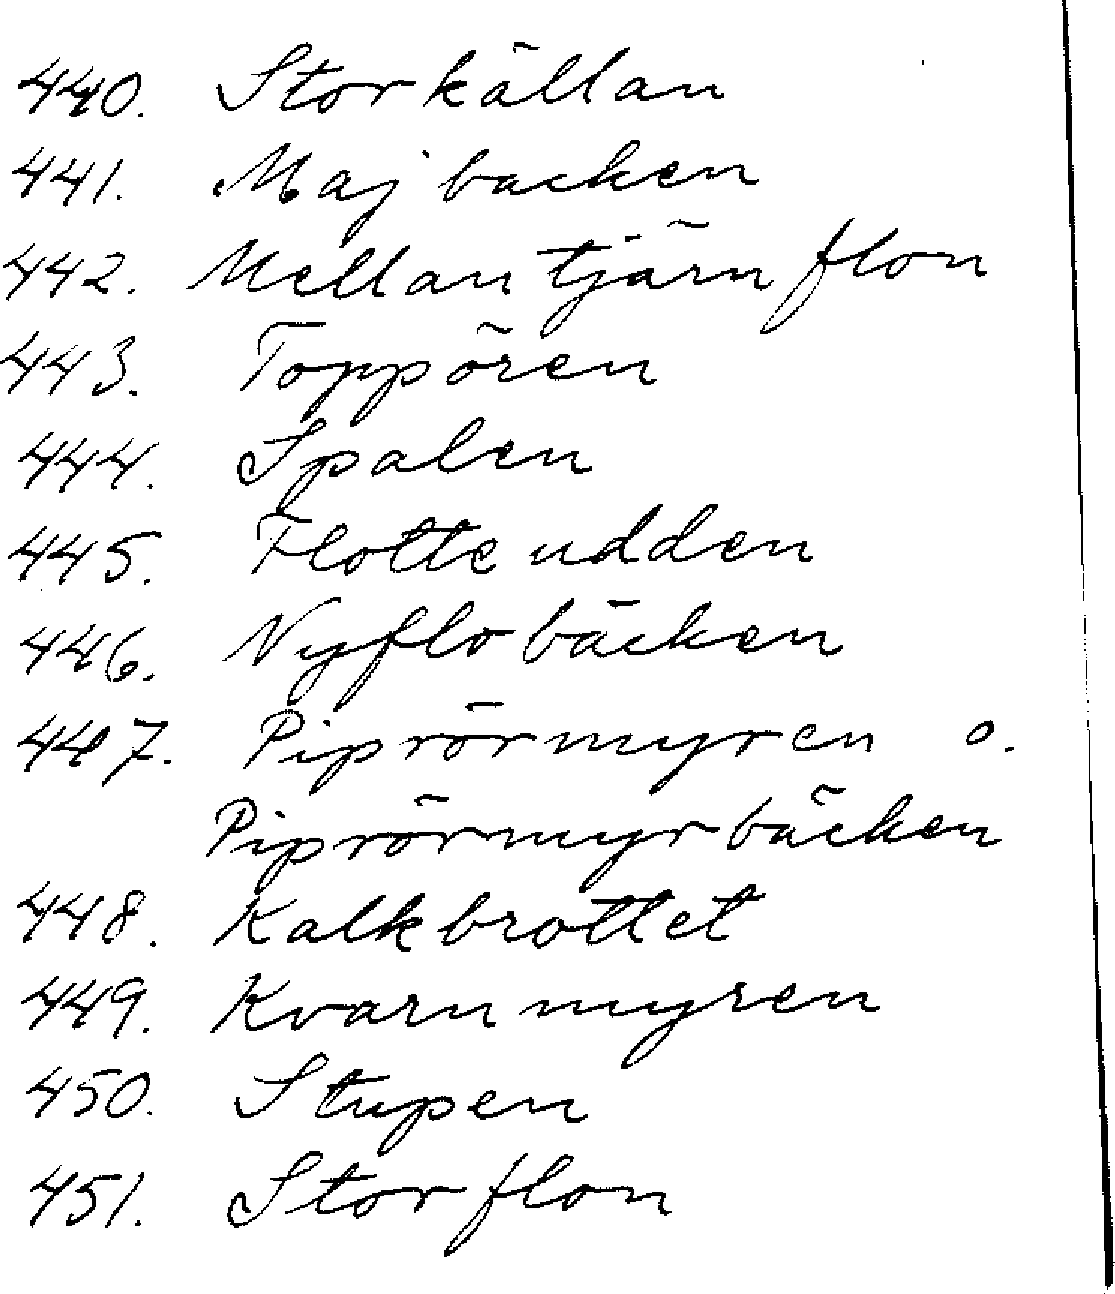 440. Storkällan
441. Majbacken
442. Mellantjärnflon
443. Toppören
444. Spalen
445. Flotteudden
446. Nyflobäcken
447. Piprörmyren o.
Piprörmyrbäcken
448. Kalkbrottet
449. Kvarnmyren
450. Stupen
451. Storflon